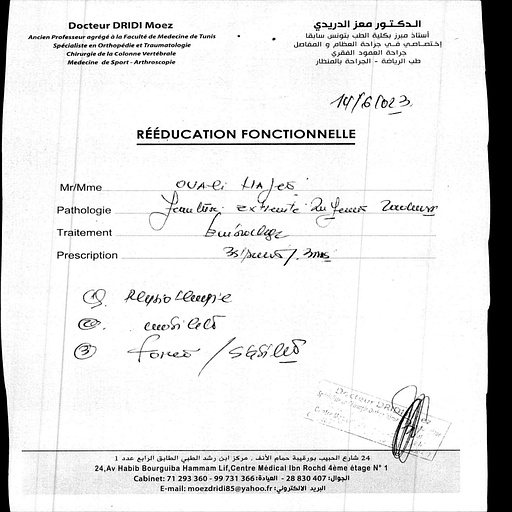 Docteur DRIDI Moez
Ancien Professeur agrégé à la Faculté de Medecine de Tunis
Spécialiste en Orthopédie et Traumatologie
Chirurgie de la Colonne Vertébrale
Medecine de Sport - Arthroscopie
الدكتور معز الدريدي
أستاذ مبرز بكلية الطب بتونس سابقا
إختصاصي في جراحة العظام و المفاصل
جراحة العمود الفقري
طب الرياضة - الجراحة بالمنظار
14/6/023
RÉÉDUCATION FONCTIONNELLE
Mr/Mme OUALi
Pathologie extrémité du femur
Traitement
Prescription
①. Physiotherapie
②. mobilité
③ force /
Docteur DRIDI
24 شارع الحبيب بورقيبة حمام الأنف . مركز ابن رشد الطبي الطابق الرابع عدد 1
24,Av Habib Bourguiba Hammam Lif,Centre Médical Ibn Rochd 4ème étage N° 1
Cabinet: 71 293 360 - 99 731 366 :العيادة - 28 830 407 :الجوال
E-mail: moezdridi85@yahoo.fr :البريد الالكتروني